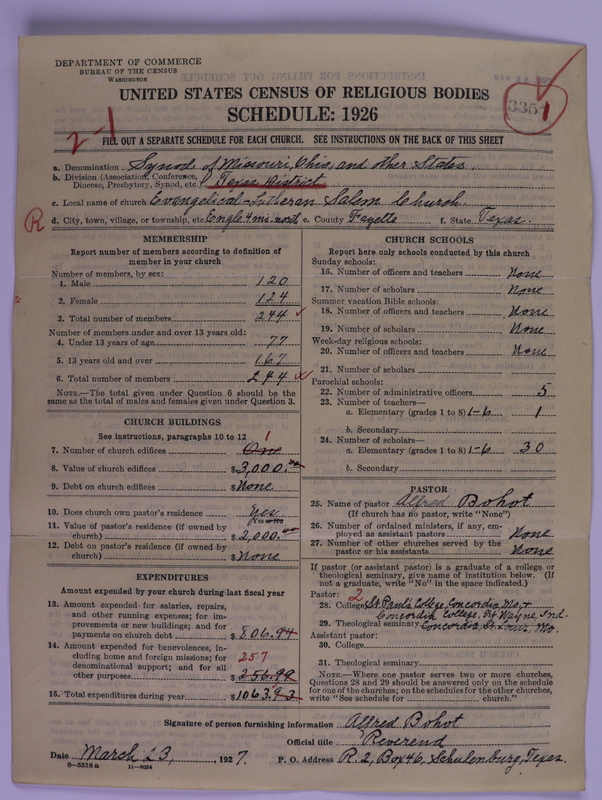 DEPARTMENT OF COMMERCE
BUREAU OF THE CENSUS
WASHINGTON
UNITED STATES CENSUS OF RELIGIOUS BODIES
SCHEDULE: 1926
335-1
2-1
FILL OUT A SEPARATE SCHEDULE FOR EACH CHURCH. SEE INSTRUCTIONS ON THE BACK OF THIS SHEET
a. Denomination Synod of Missouri, Ohio, and other States
b. Division (Association, Conference, Diocese, Presbytery, Synod, etc.) Texas District
c. Local name of church Evangelical-Lutheran Salem Church
R
d. City, town, village, or township, etc. Engle 4 mi. north e. County Fayette f. State Texas
MEMBERSHIP
Report number of members according to definition of member in your church
Number of members, by sex:
1. Male 120
2. Female 124
3. Total number of members 244
Number of members under and over 13 years old:
4. Under 13 years of age 77
5. 13 years old and over 167
6. Total number of members 244
NOTE.—The total given under Question 6 should be the same as the total of males and females given under Question 3.
CHURCH BUILDINGS
See instructions, paragraphs 10 to 12
7. Number of church edifices One 1
8. Value of church edifices $3,000.00
9. Debt on church edifices $None
10. Does church own pastor's residence Yes
Yes or No
11. Value of pastor's residence (if owned by church) $2,000.00
12. Debt on pastor's residence (if owned by church) $None
EXPENDITURES
Amount expended by your church during last fiscal year
13. Amount expended for salaries, repairs, and other running expenses; for improvements or new buildings; and for payments on church debt $806.94
14. Amount expended for benevolences, including home and foreign missions; for denominational support; and for all other purposes 257 $256.99
15. Total expenditures during year $1063.93
CHURCH SCHOOLS
Report here only schools conducted by this church
Sunday schools:
16. Number of officers and teachers None
17. Number of scholars None
Summer vacation Bible schools:
18. Number of officers and teachers None
19. Number of scholars None
Week-day religious schools:
20. Number of officers and teachers None
21. Number of scholars
Parochial schools:
22. Number of administrative officers 5
23. Number of teachers—
a. Elementary (grades 1 to 8) 1-6 1
b. Secondary
24. Number of scholars—
a. Elementary (grades 1 to 8) 1-6 30
b. Secondary
PASTOR
25. Name of pastor Alfred Bohot
(If church has no pastor, write "None")
26. Number of ordained ministers, if any, employed as assistant pastors None
27. Number of other churches served by the pastor or his assistants None
If pastor (or assistant pastor) is a graduate of a college or theological seminary, give name of institution below. (If not a graduate, write "No" in the space indicated.)
Pastor: 2
28. College St. Paul's College, Concordia, Mo. +
Concordia College Ft. Wayne Ind.
29. Theological seminary Concordia St. Louis, Mo.
Assistant pastor:
30. College
31. Theological seminary
NOTE.—Where one pastor serves two or more churches, Questions 28 and 29 should be answered only on the schedule for one of the churches; on the schedules for the other churches, write "See schedule for church."
Signature of person furnishing information Alfred Bohot
Official title Reverend
Date March 23, 1927. P. O. Address R. 2, Box 46, Schulenburg, Texas.
8-5518a 11-9054